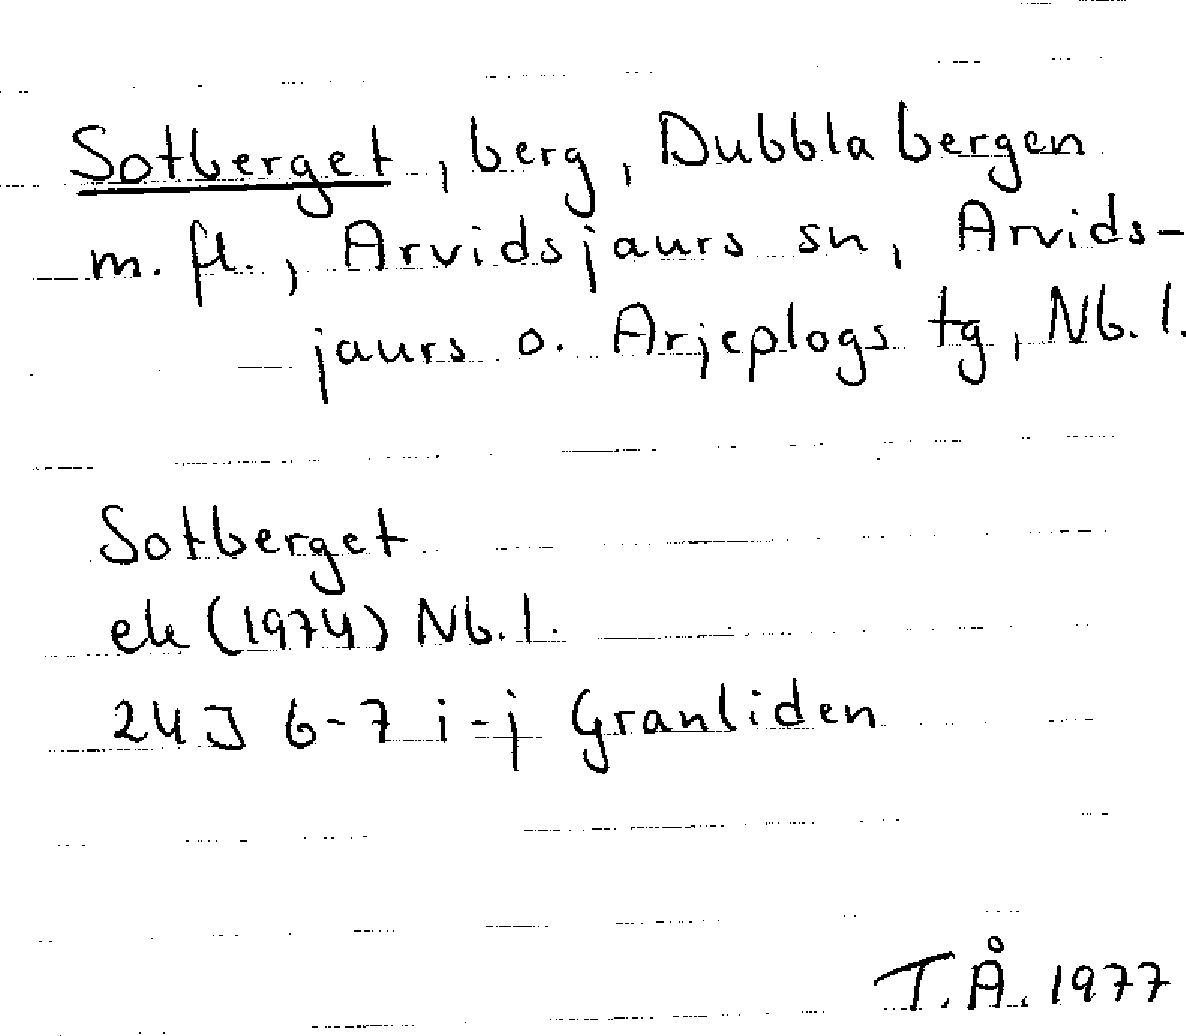 Sotberget, berg, Dubblabergen
m. fl., Arvidsjaurs sn, Arvids-
jaurs o. Arjeplogs tg, Nb. l.
Sotberget
ek (1974) Nb. l.
24J 6-7 i-j Granliden
T.Å. 1977